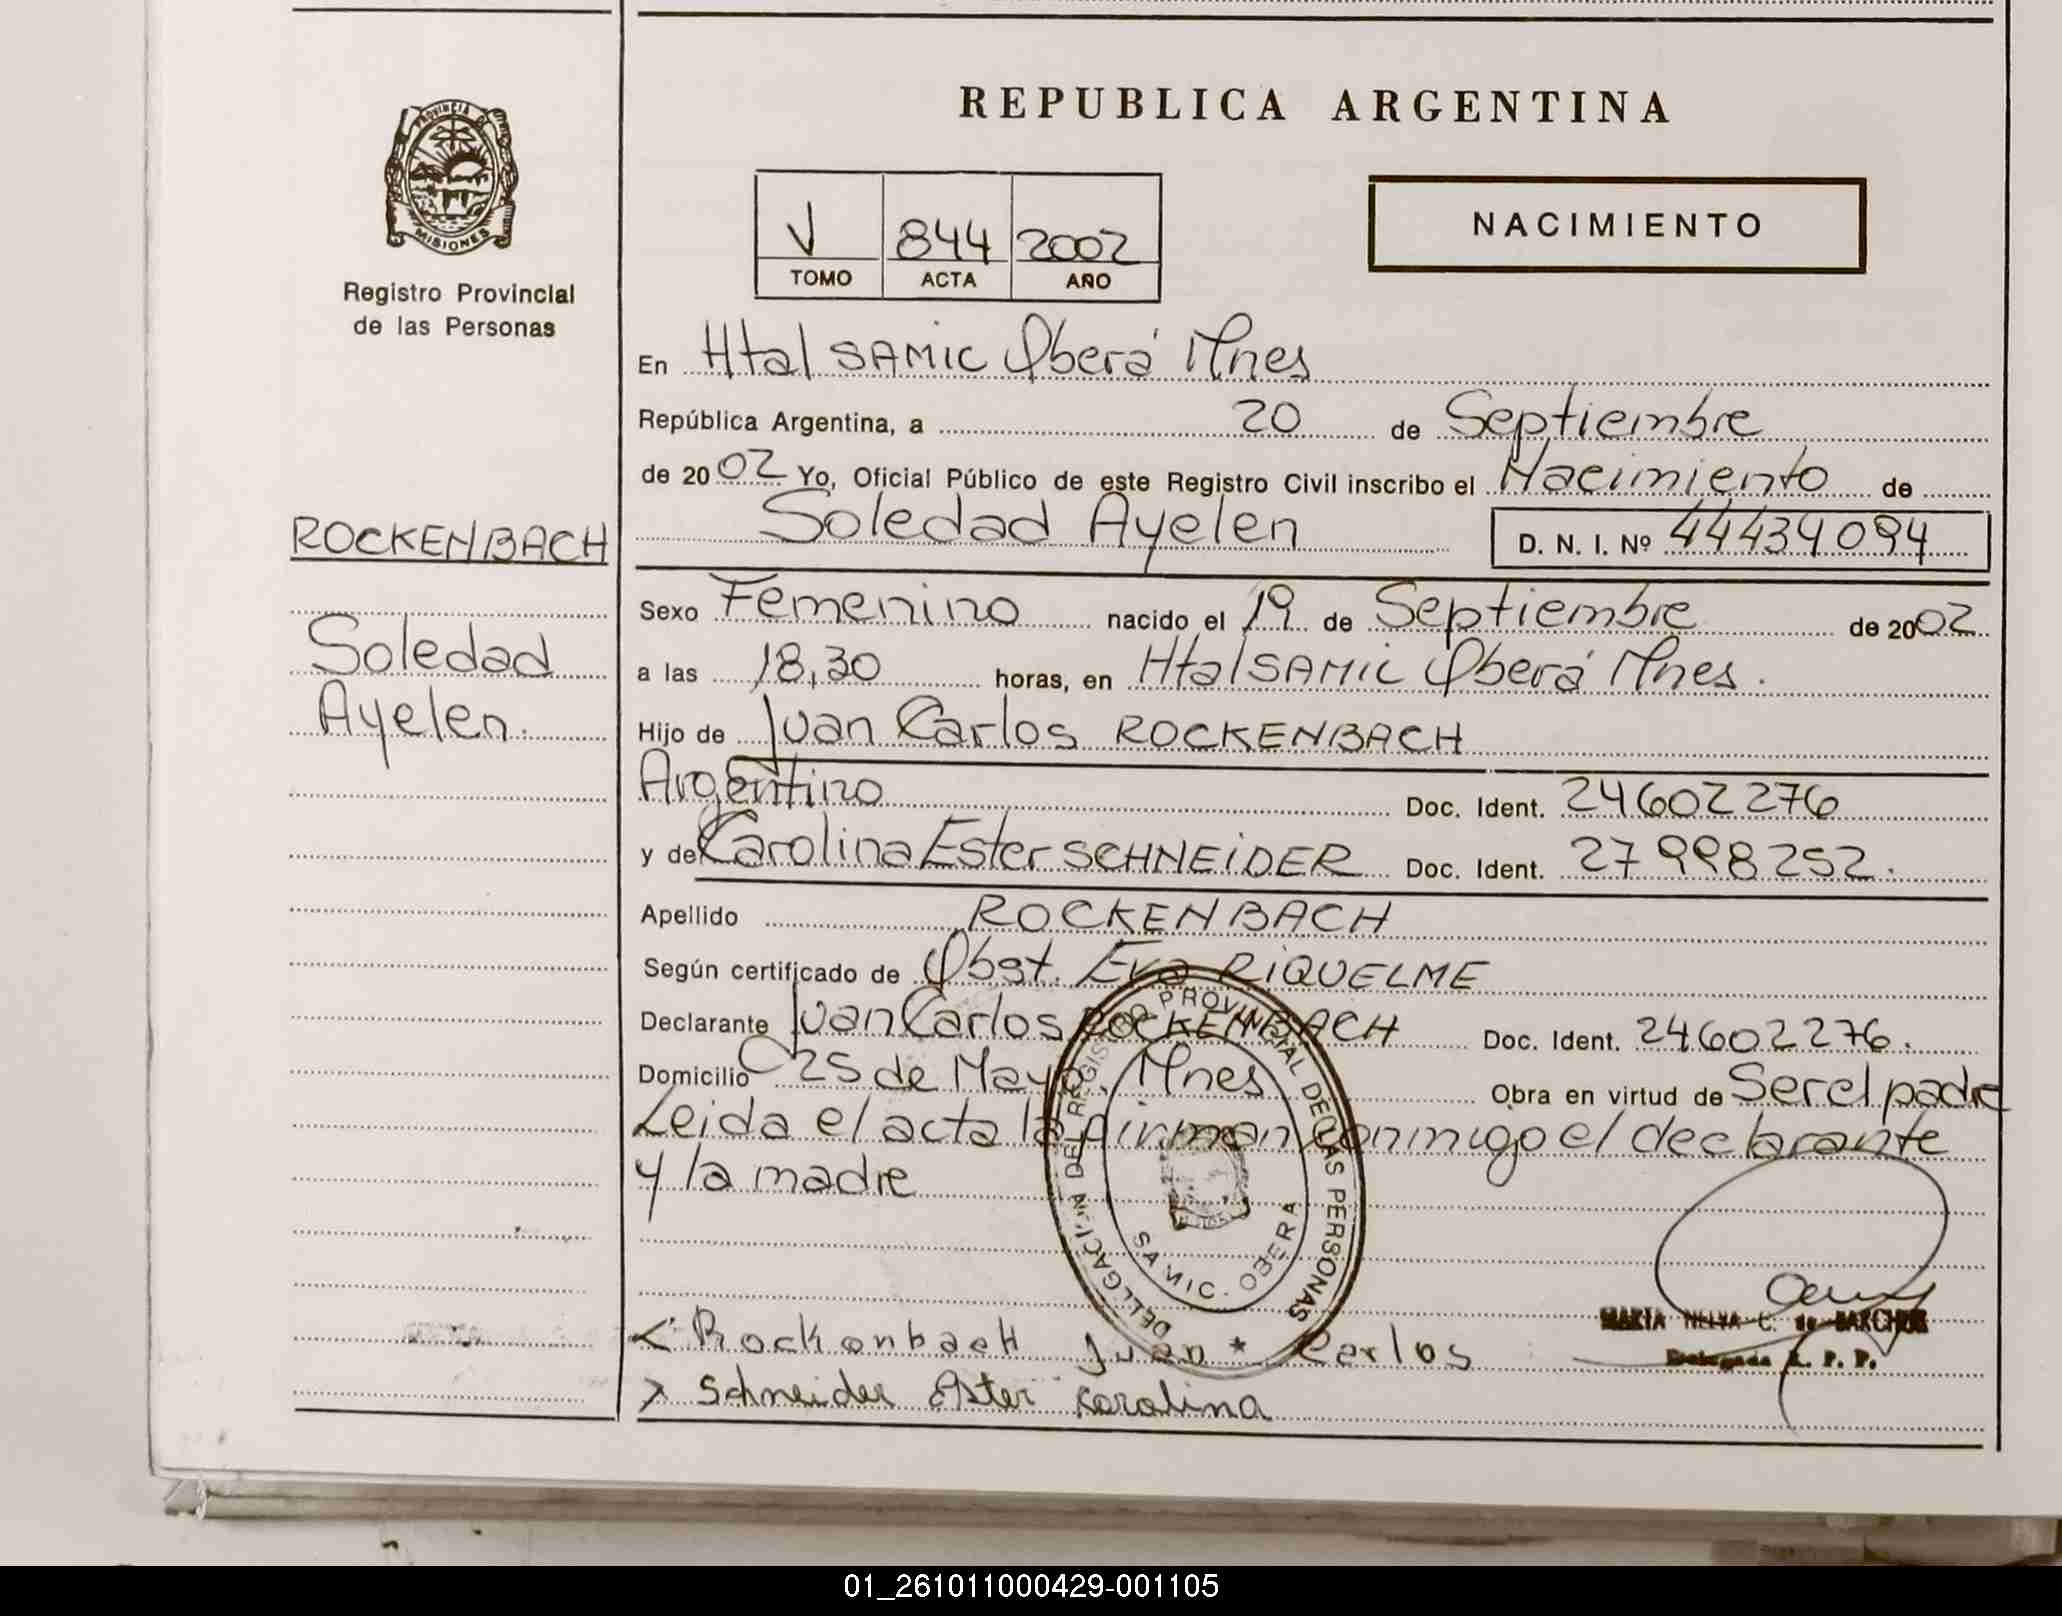 REPUBLICA ARGENTINA
PROVINCIA DE
MISIONES
Registro Provincial
de las Personas
V 844 2002
TOMO ACTA AÑO
NACIMIENTO
En Htal SAMIC Oberá Mnes
República Argentina, a 20 de Septiembre
de 2002 Yo, Oficial Público de este Registro Civil inscribo el Nacimiento de
Soledad Ayelen D. N. I. Nº 44434094
ROCKENBACH
Soledad
Ayelen.
Sexo Femenino nacido el 19 de Septiembre de 2002
a las 18,30 horas, en Htal SAMIC Oberá Mnes.
Hijo de Juan Carlos ROCKENBACH
Argentino Doc. Ident. 24602276
y de Carolina Ester SCHNEIDER Doc. Ident. 27998252.
Apellido ROCKENBACH
Según certificado de Obst. Eva RIQUELME
Declarante Juan Carlos ROCKENBACH Doc. Ident. 24602276.
Domicilio 25 de Mayo, Mnes Obra en virtud de Ser el padre
Leida el acta la firman conmigo el declarante
y la madre
DELEGACION DEL REGISTRO PROVINCIAL DE LAS PERSONAS
SAMIC. OBERA
MARIA NELVA C. de
Delegada R. P. P.
Rockenbach Juan Carlos
Schneider Ester Karolina
01_261011000429-001105